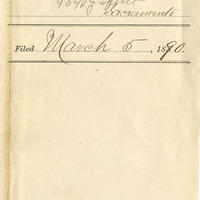 Street
Sacramento
Filed March 5, 1890.